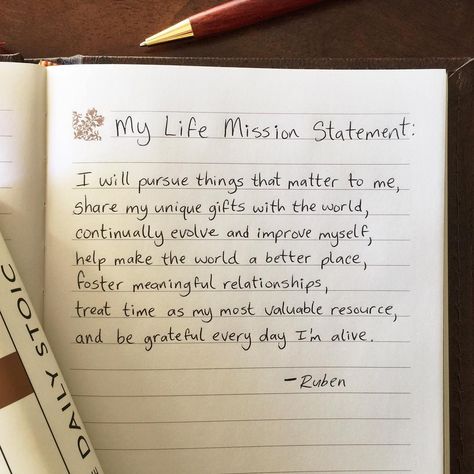 My Life Mission Statement:
I will pursue things that matter to me,
share my unique gifts with the world,
continually evolve and improve myself,
help make the world a better place,
foster meaningful relationships,
treat time as my most valuable resource,
and be grateful every day I'm alive.
– Ruben
DAILY STOIC